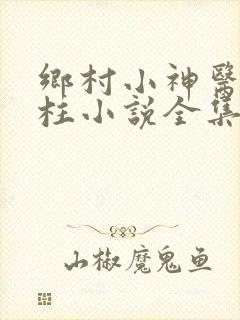 鄉村小神醫
柱小說全集
山椒魔鬼鱼